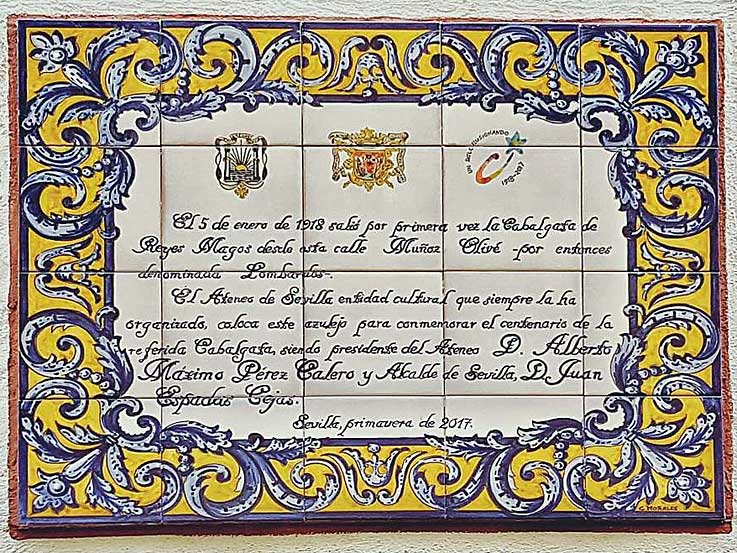 UN SIGLO ILUSIONANDO
1918-2017
El 5 de enero de 1918 salió por primera vez la Cabalgata de
Reyes Magos desde esta calle Muñoz Olivé -por entonces
denominada Lombardos-.
El Ateneo de Sevilla entidad cultural que siempre la ha
organizado, coloca este azulejo para conmemorar el centenario de la
referida Cabalgata, siendo presidente del Ateneo D. Alberto
Maximo Pérez Calero y Alcalde de Sevilla, D. Juan
Espadas Cejas.
Sevilla, primavera de 2017.
C. MORALES